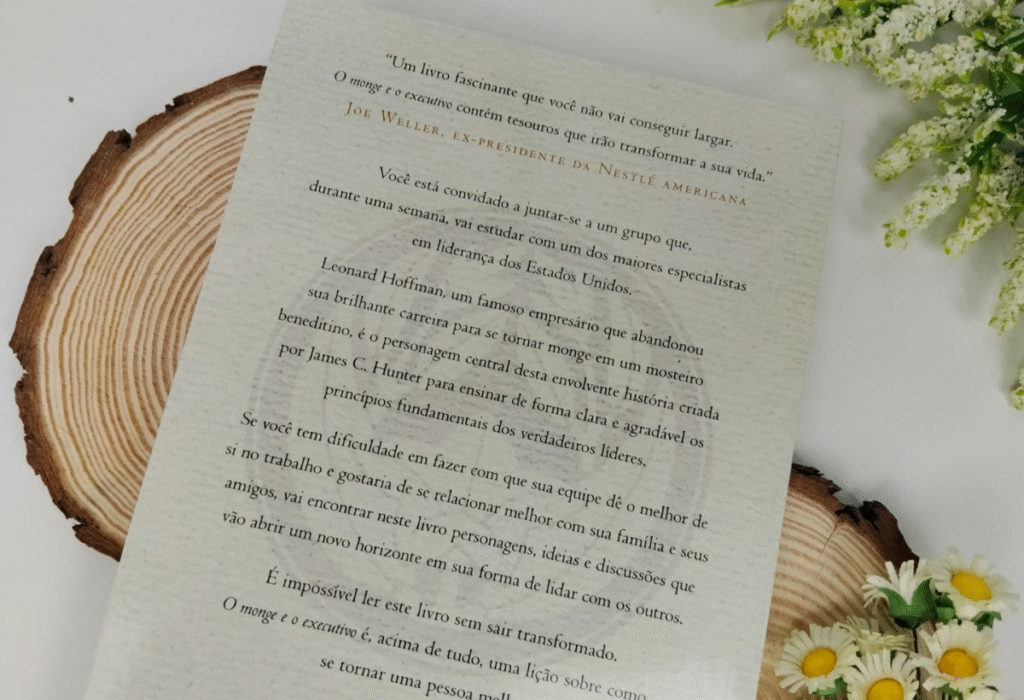 "Um livro fascinante que você não vai conseguir largar.
O monge e o executivo contém tesouros que irão transformar a sua vida."
JOE WELLER, EX-PRESIDENTE DA NESTLÉ AMERICANA
Você está convidado a juntar-se a um grupo que,
durante uma semana, vai estudar com um dos maiores especialistas
em liderança dos Estados Unidos.
Leonard Hoffman, um famoso empresário que abandonou
sua brilhante carreira para se tornar monge em um mosteiro
beneditino, é o personagem central desta envolvente história criada
por James C. Hunter para ensinar de forma clara e agradável os
princípios fundamentais dos verdadeiros líderes.
Se você tem dificuldade em fazer com que sua equipe dê o melhor de
si no trabalho e gostaria de se relacionar melhor com sua família e seus
amigos, vai encontrar neste livro personagens, ideias e discussões que
vão abrir um novo horizonte em sua forma de lidar com os outros.
É impossível ler este livro sem sair transformado.
O monge e o executivo é, acima de tudo, uma lição sobre como
se tornar uma pessoa